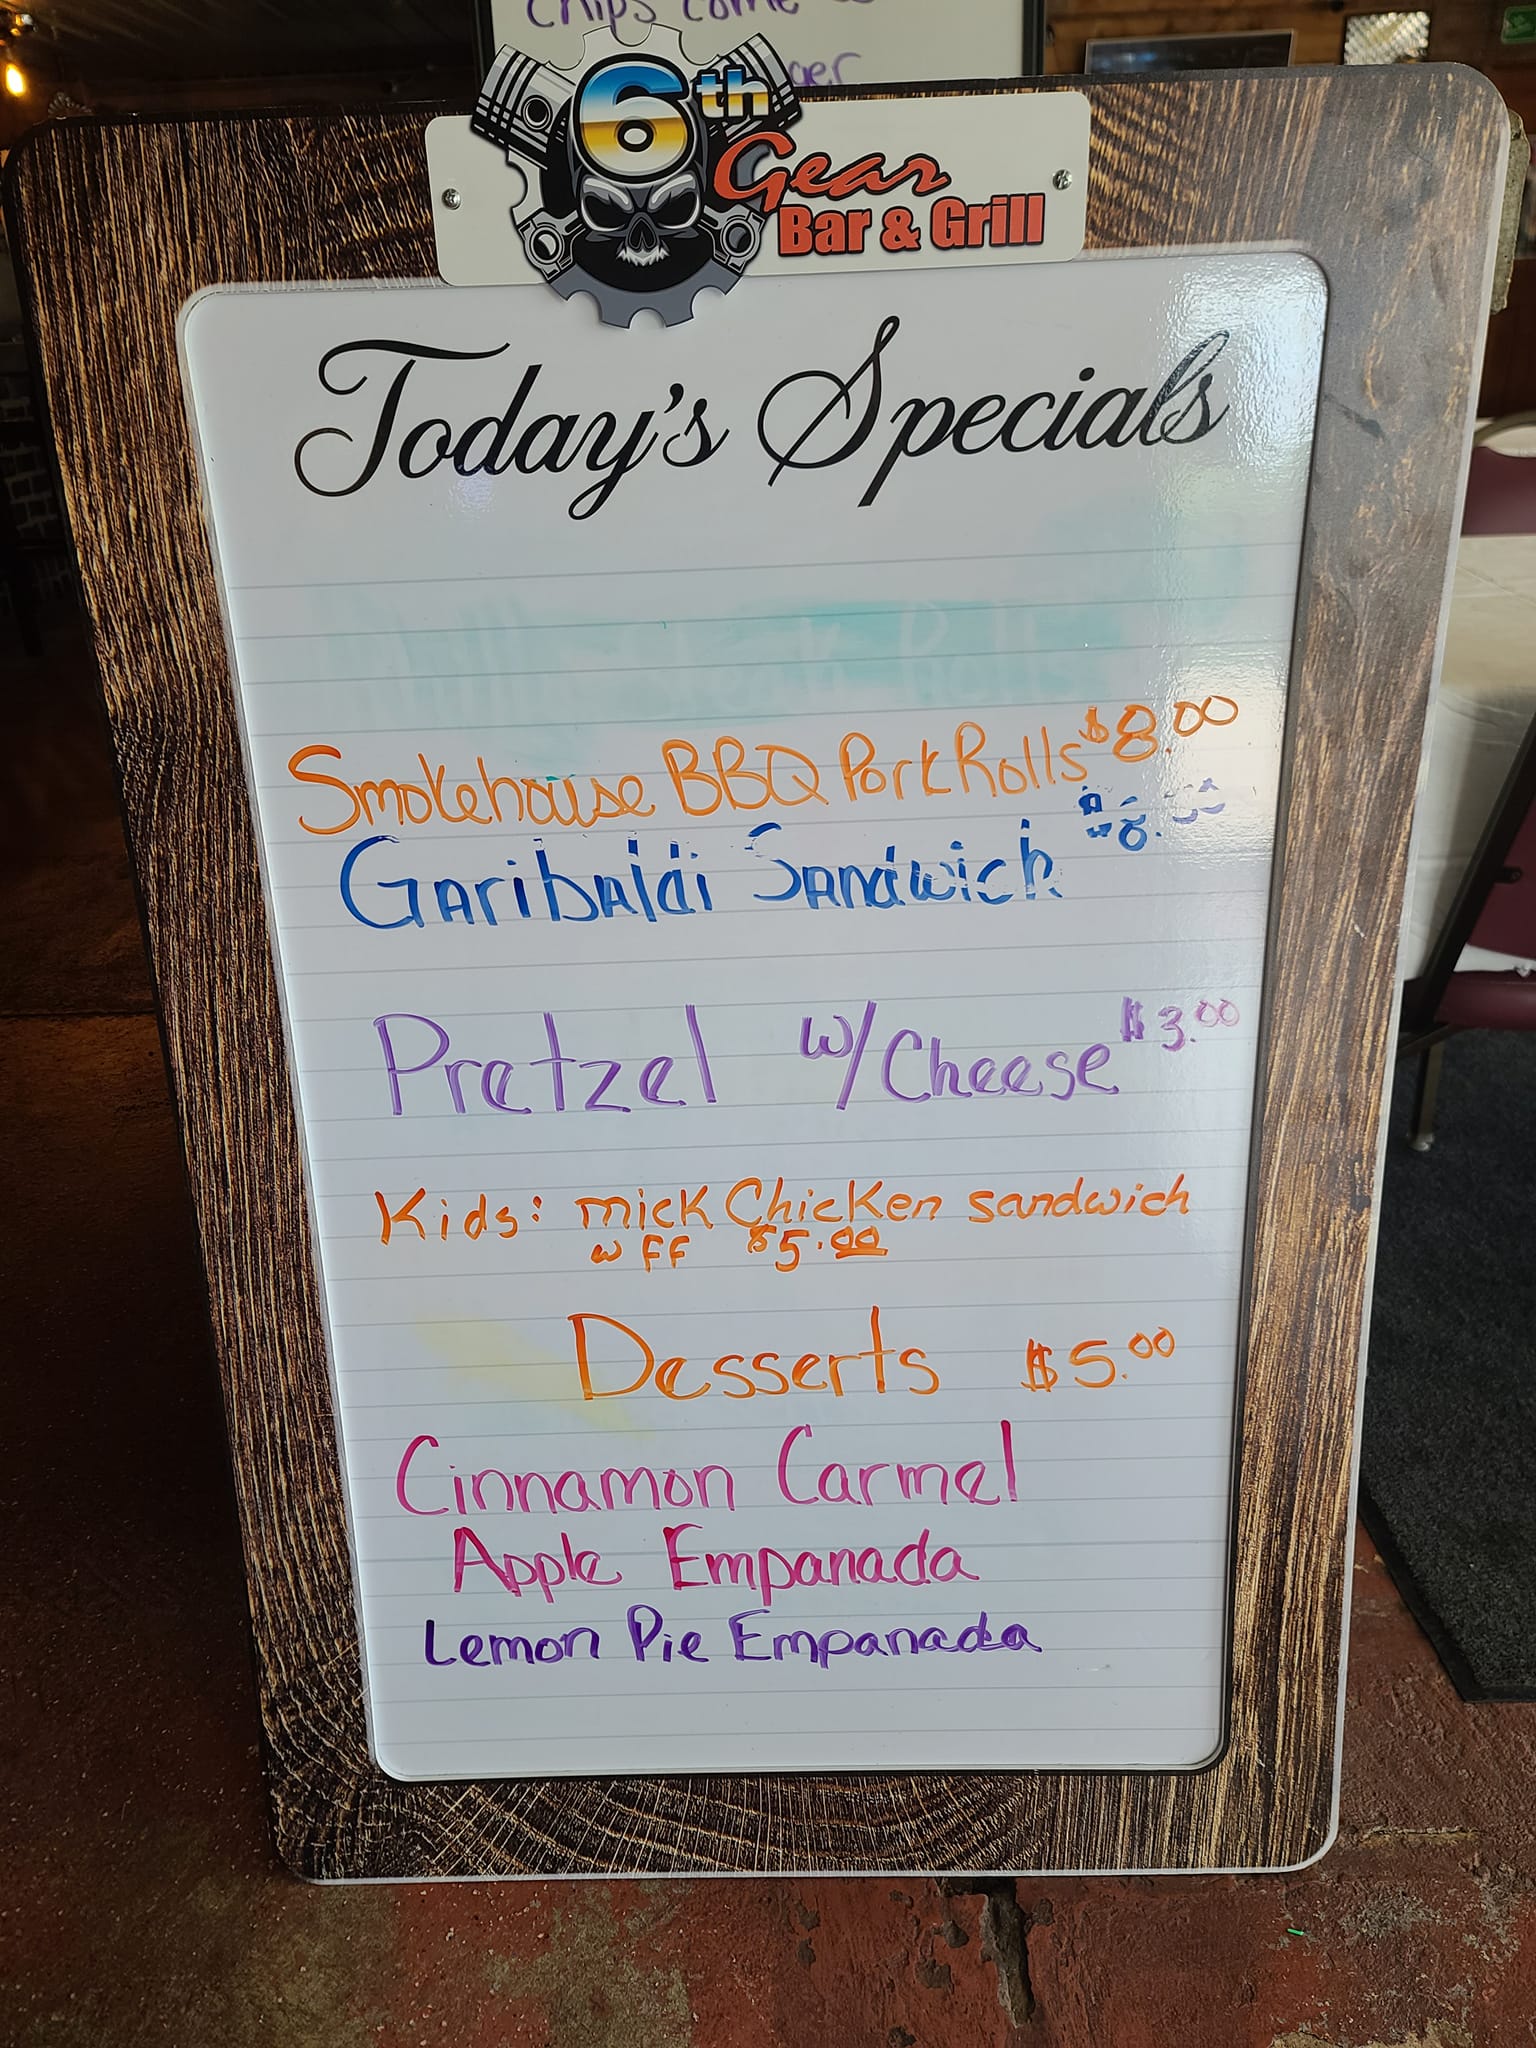 Chips come
ger
6th
Gear
Bar & Grill
Today's Specials
Steak Rolls
Smokehouse BBQ Pork Rolls $8.00
Garibaldi Sandwich
Pretzel w/Cheese $3.00
Kids: mick Chicken sandwich
w FF $5.00
Desserts $5.00
Cinnamon Carmel
Apple Empanada
Lemon Pie Empanada